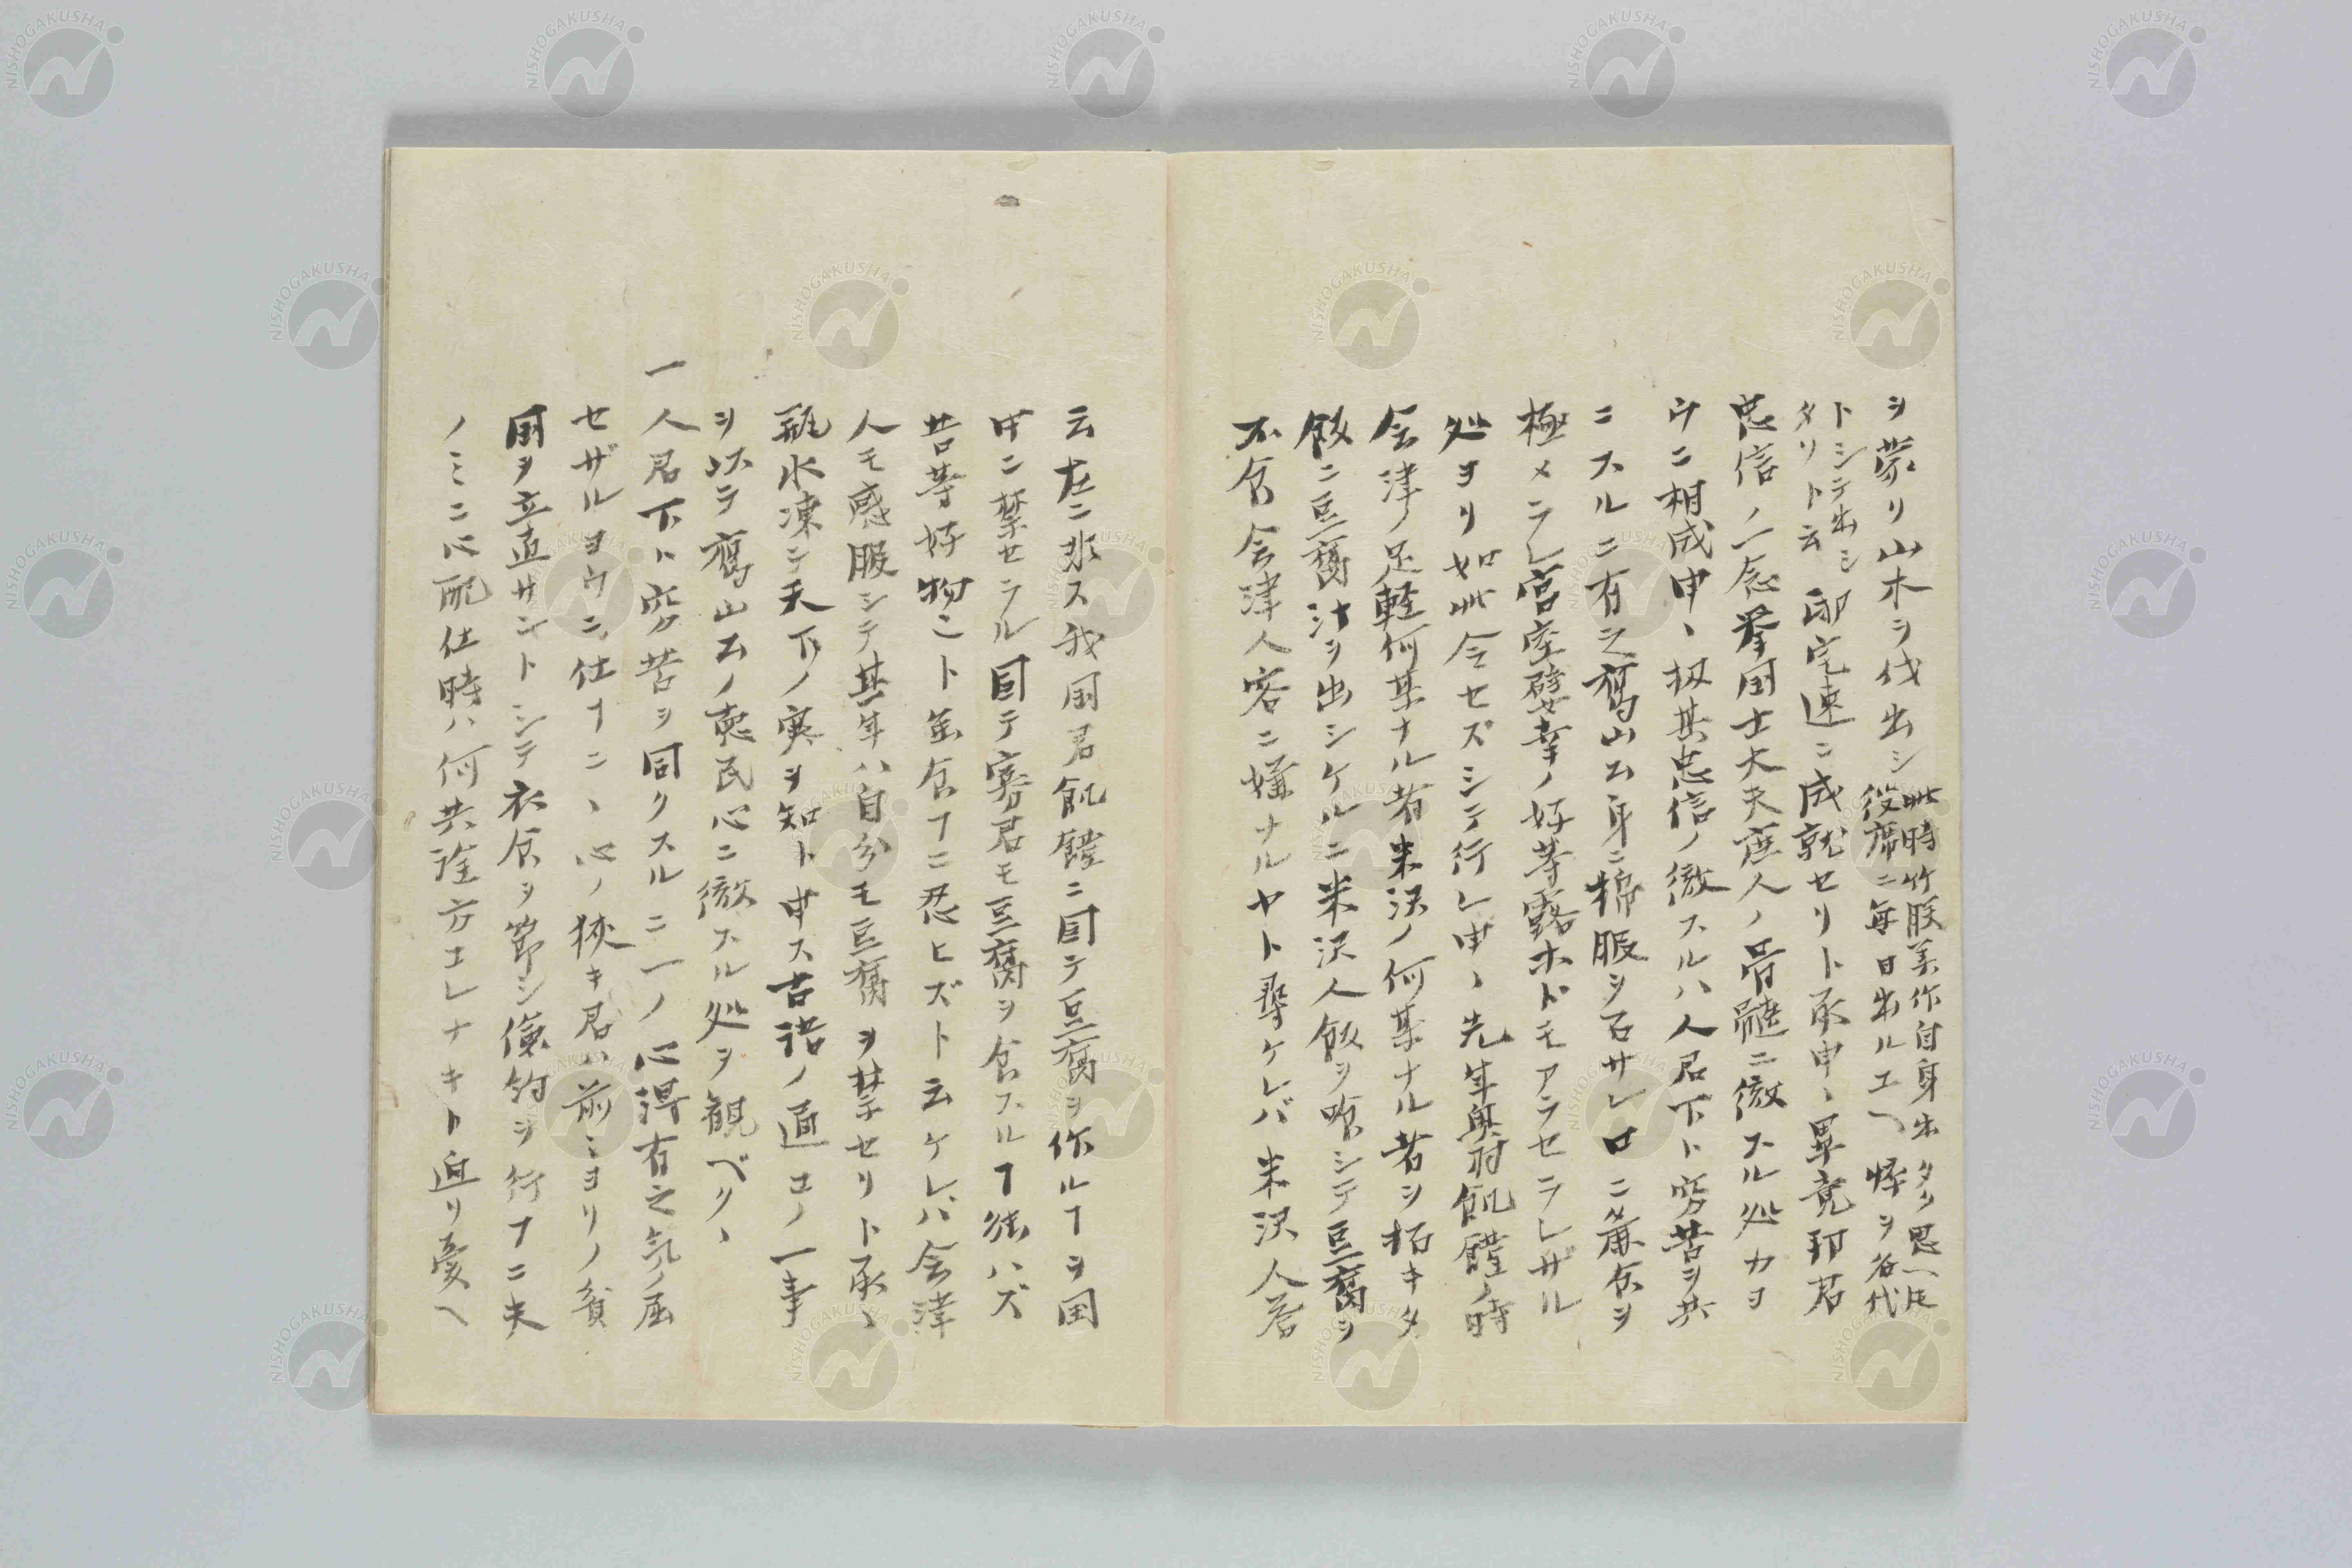 ヲ蒙リ山木ヲ伐出シ
此時竹股美作自身出タリ思ヘ圧
役席ニ毎日出ルエヘ怪ヲ名代
トシテ出シ
タリト云
邸宅速ニ成就セリト承申、畢竟邦君
忠信ノ一念挙国士大夫庶人ノ骨髄ニ徹スル処カヨ
ウニ相成申、扨其忠信ノ徹スルハ人君下ト窮苦ヲ共
ニスルニ有之鷹山公身ニ棉服ヲ召サレ口ニ麁食ヲ
極メラレ宮室嬖幸ノ好等露ホドモアラセラレザル
処ヨリ如此令セズシテ行レ申、先年奥羽飢饉ノ時
会津ノ足軽何某ナル者米沢ノ何某ナル者ヲ招キタ
飯ニ豆腐汁ヲ出シケルニ米沢人飯ヲ喰シテ豆腐ヲ
不食会津人客ニ嫌ナルヤト尋ケレバ米沢人答
云左ニ非ス我国君飢饉ニ因テ豆腐ヲ作ルヿヲ国
中ニ禁セラル因テ寡君モ豆腐ヲ食スルヿ能ハズ
昔等好物ニト虽食フニ忍ヒズト云ケレバ会津
人モ感服シテ其年ハ自分モ豆腐ヲ禁セリト承、
瓶水凍テ天下ノ寒ヲ知ト申ス古語ノ通コノ一事
ヲ以テ鷹山公ノ恵民心ニ徹スル処ヲ観ベク、
一人君下ト窮苦ヲ同クスルニ一ノ心得有之気ノ屈
セザルヨウニ仕ヿニ、心ノ狭キ君ハ前ミヨリノ貧
国ヲ立直サントシテ衣食ヲ節シ倹約ヲ行フニ夫
ノミニ心配仕時ハ何共詮方コレナキト迫リ憂ヘ